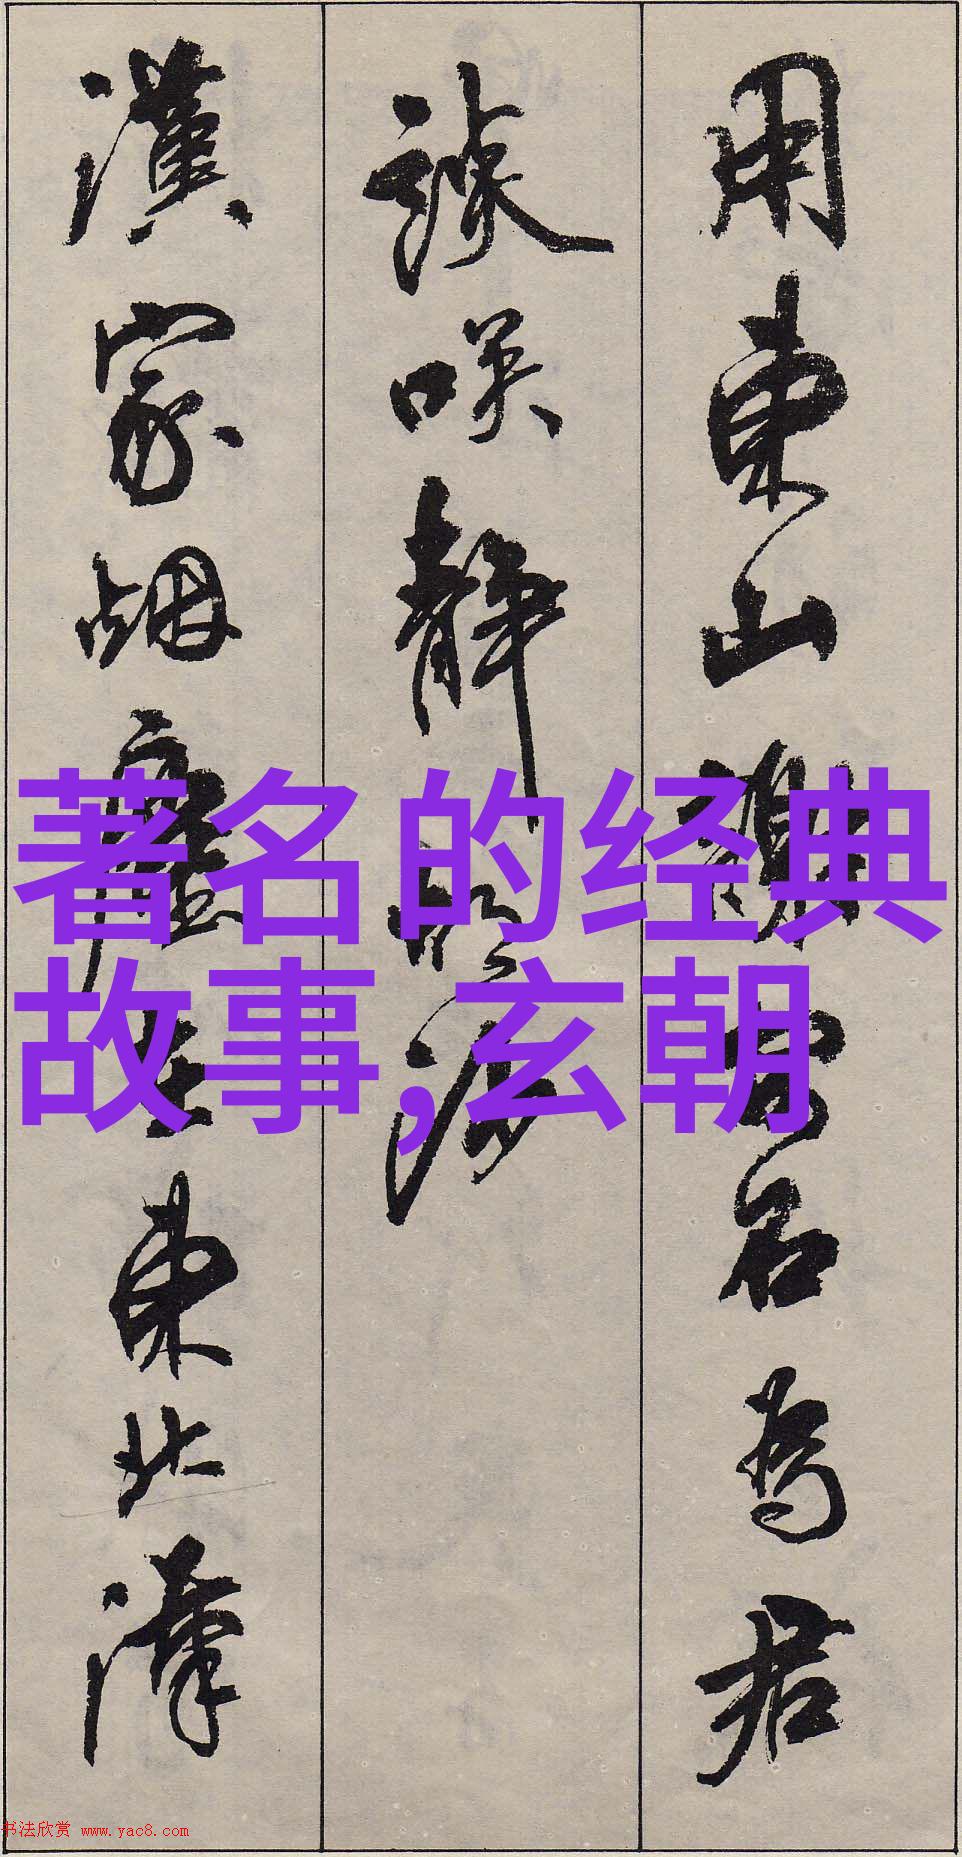 用東山謝安石為君
談笑静胡沙
漢家烟塵在東北漢
著名的经典
故事,玄朝
书法欣赏 www.yac8.com